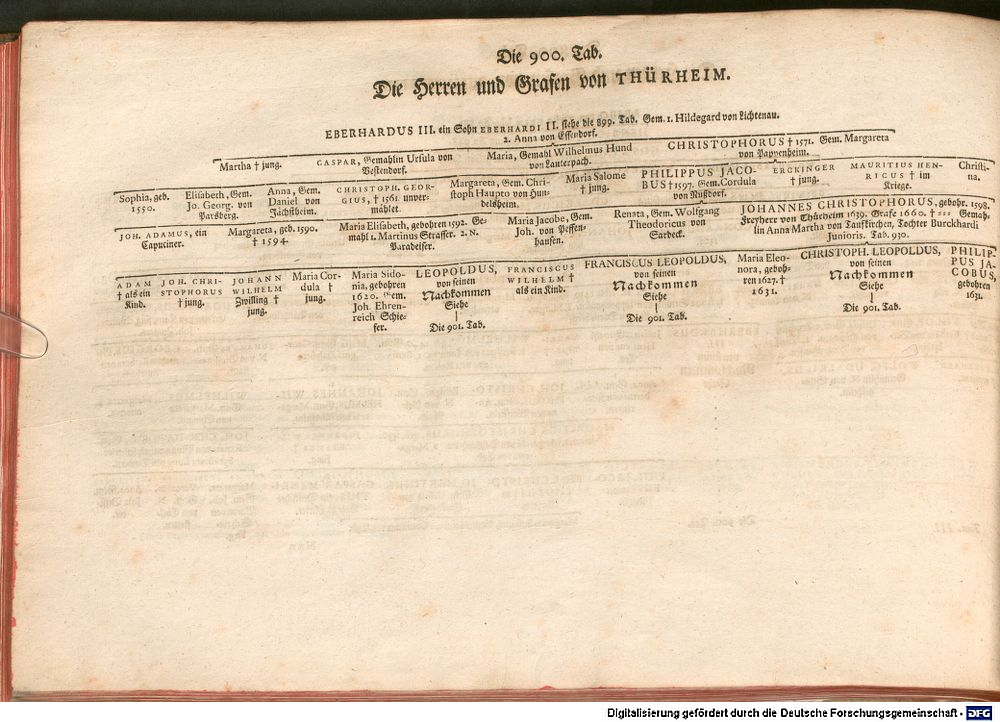 Die 900. Tab.
Die Herren und Grafen von THÜRHEIM.
EBERHARDUS III. ein Sohn EBERHARDI II. siehe die 899. Tab. Gem. 1. Hildegard von Lichtenau.
2. Anna von Essendorf.
Martha † jung.
GASPAR, Gemahlin Ursula von
Vestendorf.
Maria, Gemahl Wilhelmus Hund
von Lauterpach.
CHRISTOPHORUS † 1571. Gem. Margareta
von Pappenheim.
Sophia, geb.
1550.
Elisabeth, Gem.
Jo. Georg. von
Parsberg.
Anna, Gem.
Daniel von
Jächsheim.
CHRISTOPH. GEOR-
GIUS, † 1561. unver-
mählet.
Margareta, Gem. Chri-
stoph Haupto von Hun-
delsheim.
Maria Salome
† jung.
PHILIPPUS JACO-
BUS † 1597. Gem. Cordula
von Nußdorf.
ERCKINGER
† jung.
MAURITIUS HEN-
RICUS † im
Kriege.
Christi-
na.
JOH. ADAMUS, ein
Caputiner.
Margareta, geb. 1590.
† 1594.
Maria Elisabeth, gebohren 1592. Ge-
mahl 1. Martinus Strasser. 2. N.
Paradeiser.
Maria Jacobe, Gem.
Joh. von Pessen-
hausen.
Renata, Gem. Wolfgang
Theodoricus von
Sarbeck.
JOHANNES CHRISTOPHORUS, gebohr. 1598.
Freyherr von Thürheim 1639. Grafe 1660. † === Gemah-
lin Anna Martha von Taufkirchen, Tochter Burckhardi
Junioris. Tab. 930.
ADAM
† als ein
Kind.
JOH. CHRI-
STOPHORUS
† jung.
JOHANN
WILHELM
Zwilling †
jung.
Maria Cor-
dula †
jung.
Maria Sido-
nia, gebohren
1620. Gem.
Joh. Ehren-
reich Schie-
fer.
LEOPOLDUS,
von seinen
Nachkommen
Siehe
|
Die 901. Tab.
FRANCISCUS
WILHELM †
als ein Kind.
FRANCISCUS LEOPOLDUS,
von seinen
Nachkommen
Siehe
|
Die 901. Tab.
Maria Eleo-
nora, geboh-
ren 1627. †
1631.
CHRISTOPH. LEOPOLDUS,
von seinen
Nachkommen
Siehe
|
Die 901. Tab.
PHILIP-
PUS JA-
COBUS,
gebohren
1631.
Digitalisierung gefördert durch die Deutsche Forschungsgemeinschaft - DFG